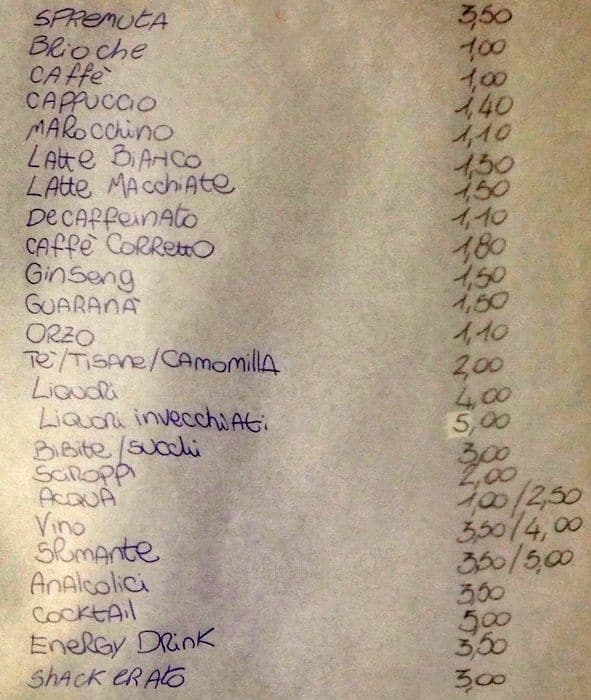 SPREMUTA 3,50
BRIOCHE 1,00
CAFFÈ 1,00
CAPPUCCIO 1,40
MAROCCHINO 1,10
LATTE BIANCO 1,30
LATTE MACCHIATE 1,50
DECAFFEINATO 1,10
CAFFÈ CORRETTO 1,80
GINSENG 1,50
GUARANÀ 1,50
ORZO 1,10
TÈ/TISANE/CAMOMILLA 2,00
LIQUORI 4,00
LIQUORI INVECCHIATI 5,00
BIBITE/SUCCHI 3,00
SCIROPPI 2,00
ACQUA 1,00/2,50
VINO 3,50/4,00
SPUMANTE 3,50/5,00
ANALCOLICI 3,50
COCKTAIL 5,00
ENERGY DRINK 3,50
SHACKERATO 3,00